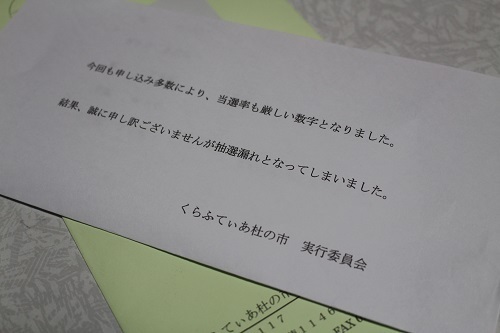 今回も申し込み多数により、当選率も厳しい数字となりました。
結果、誠に申し訳ございませんが抽選漏れとなってしまいました。
くらふてぃあ杜の市　実行委員会
ふてぃあ杜の市
117
1146
FAX